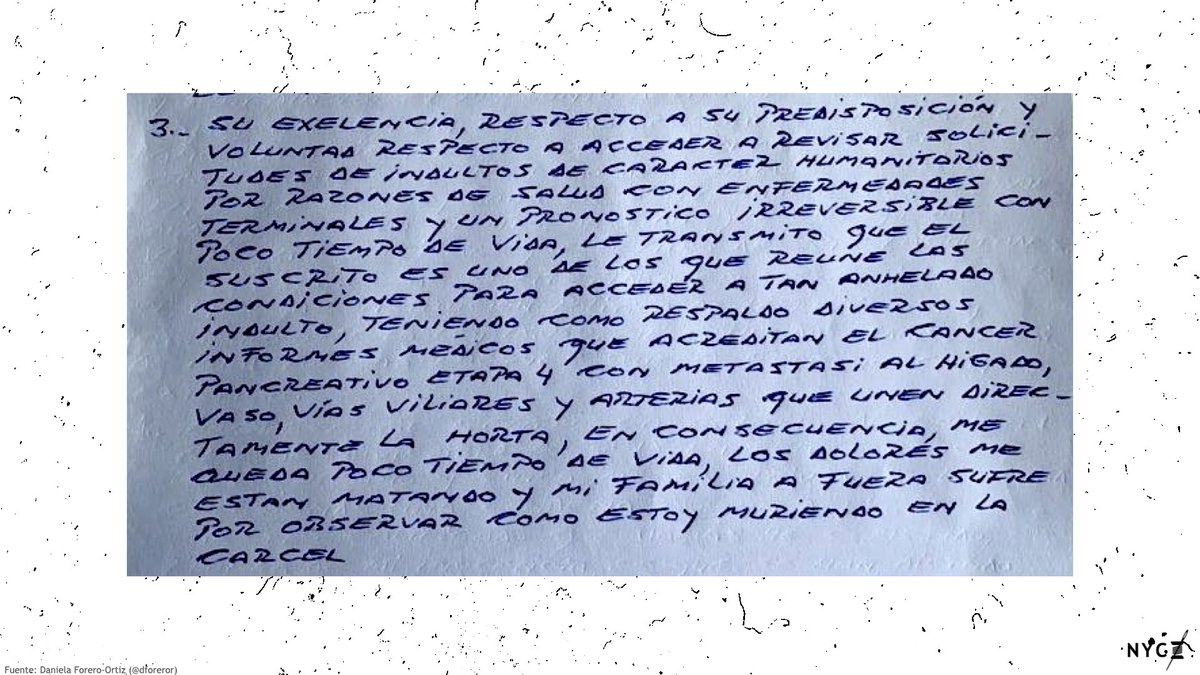 3.- SU EXELENCIA, RESPECTO A SU PREDISPOSICIÓN Y
VOLUNTAD RESPECTO A ACCEDER A REVISAR SOLICI-
TUDES DE INDULTOS DE CARACTER HUMANITARIOS
POR RAZONES DE SALUD CON ENFERMEDADES
TERMINALES Y UN PRONOSTICO IRREVERSIBLE CON
POCO TIEMPO DE VIDA, LE TRANSMITO QUE EL
SUSCRITO ES UNO DE LOS QUE REUNE LAS
CONDICIONES PARA ACCEDER A TAN ANHELADO
INDULTO, TENIENDO COMO RESPALDO DIVERSOS
INFORMES MÉDICOS QUE ACREDITAN EL CANCER
PANCREATIVO ETAPA 4 CON METASTASI AL HIGADO,
VASO, VÍAS VILIARES Y ARTERIAS QUE UNEN DIREC-
TAMENTE LA HORTA, EN CONSECUENCIA, ME
QUEDA POCO TIEMPO DE VIDA, LOS DOLORES ME
ESTAN MATANDO Y MI FAMILIA A FUERA SUFRE
POR OBSERVAR COMO ESTOY MURIENDO EN LA
CARCEL
Fuente: Daniela Forero-Ortiz (@dforeror)